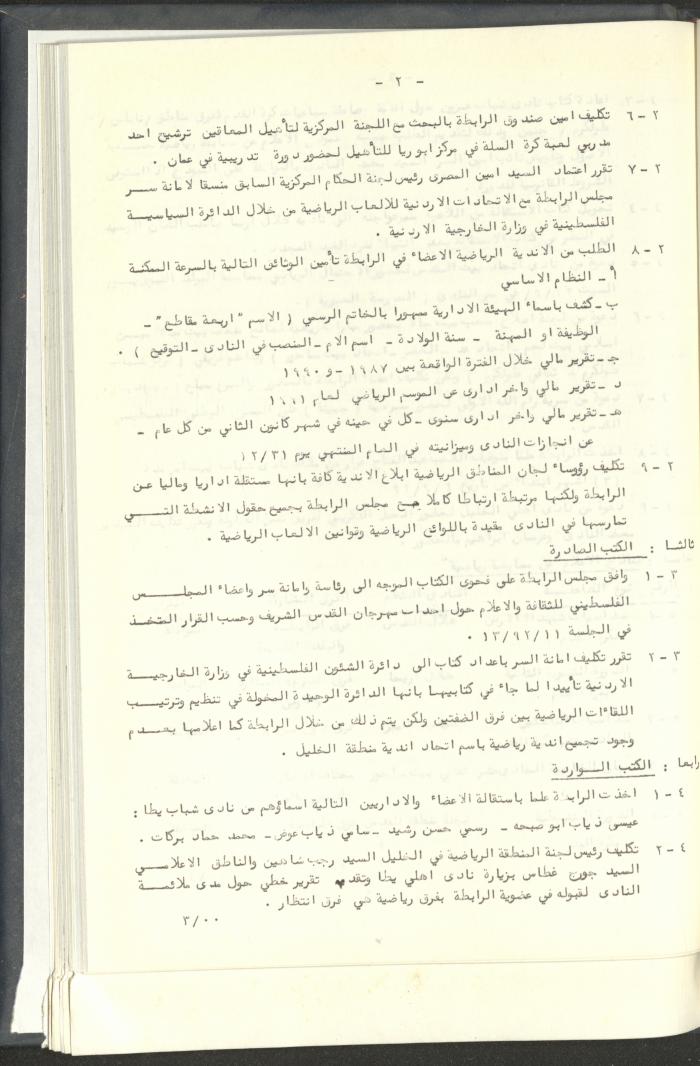 - ٢ -
٢ - ٦ تكليف امين صندوق الرابطة بالبحث مع اللجنة المركزية لتأهيل المعاقين ترشيح احد
مدربي لعبة كرة السلة في مركز ابو ريا للتأهيل لحضور دورة تدريبية في عمان .
٢ - ٧ تقرر اعتماد السيد امين المصرى رئيس لجنة الحكام المركزية السابق منسقا لامانة ســر
مجلس الرابطة مع الاتحادات الاردنية للالعاب الرياضية من خلال الدائرة السياسيــة
الفلسطينية في وزارة الخارجية الاردنية .
٢ - ٨ الطلب من الاندية الرياضية الاعضاء في الرابطة تأمين الوثائق التالية بالسرعة الممكنة
أ - النظام الاساسي
ب - كشف باسماء الهيئة الادارية ممهورا بالخاتم الرسمي ( الاسم " اربعة مقاطع " -
الوظيفة او المهنة - سنة الولادة - اسم الام - المنصب في النادى - التوقيع ) .
جـ - تقرير مالي خلال الفترة الواقعة بين ١٩٨٧ - و ١٩٩٠
د - تقرير مالي واخر ادارى عن الموسم الرياضي لعام ١٩٩١
هـ - تقرير مالي واخر ادارى سنوى - كل في حينه في شهر كانون الثاني من كل عام -
عن انجازات النادى وميزانيته في العام المنتهي يوم ١٢/٣١
٢ - ٩ تكليف رؤوساء لجان المناطق الرياضية ابلاغ الاندية كافة بانها مستقلة اداريا وماليا عـن
الرابطة ولكنها مرتبطة ارتباطا كاملا مع مجلس الرابطة بجميع حقول الانشطة التــــي
تمارسها في النادى مقيدة باللوائح الرياضية وقوانين الالعاب الرياضية .
ثالثـا : الكتب الصادرة
٣ - ١ وافق مجلس الرابطة على فحوى الكتاب الموجه الى رئاسة وامانة سر واعضاء المجلـــس
الفلسطيني للثقافة والاعلام حول احداث مهرجان القدس الشريف وحسب القرار المتخـذ
في الجلسة ١٣/٩٢/١١ .
٣ - ٢ تقرر تكليف امانة السر باعداد كتاب الى دائرة الشئون الفلسطينية في وزارة الخارجيــة
الاردنية تأييدا لما جاء في كتابيهـا بانها الدائرة الوحيدة المخولة في تنظيم وترتيــب
اللقاءات الرياضية بين فرق الضفتين ولكن يتم ذلك من خلال الرابطة كما اعلامها بعــدم
وجود تجميع اندية رياضية باسم اتحاد اندية منطقة الخليل .
رابعا : الكتب الـــواردة
٤ - ١ اخذت الرابطة علما باستقالة الاعضاء والاداريين التالية اسماؤهم من نادى شباب يطا :
عيسى ذياب ابو صبحه - رسمي حسن رشيد - سامي ذياب عوض - محمد حماد بركات .
٤ - ٢ تكليف رئيس لجنة المنطقة الرياضية في الخليل السيد رجب شاهين والناطق الاعلامـــي
السيد جورج غطاس بزيارة نادى اهلي يطا وتقديم تقرير خطي حول مدى ملائمــة
النادى لقبوله في عضوية الرابطة بفرق رياضية هي فرق انتظار .
٣/٠٠